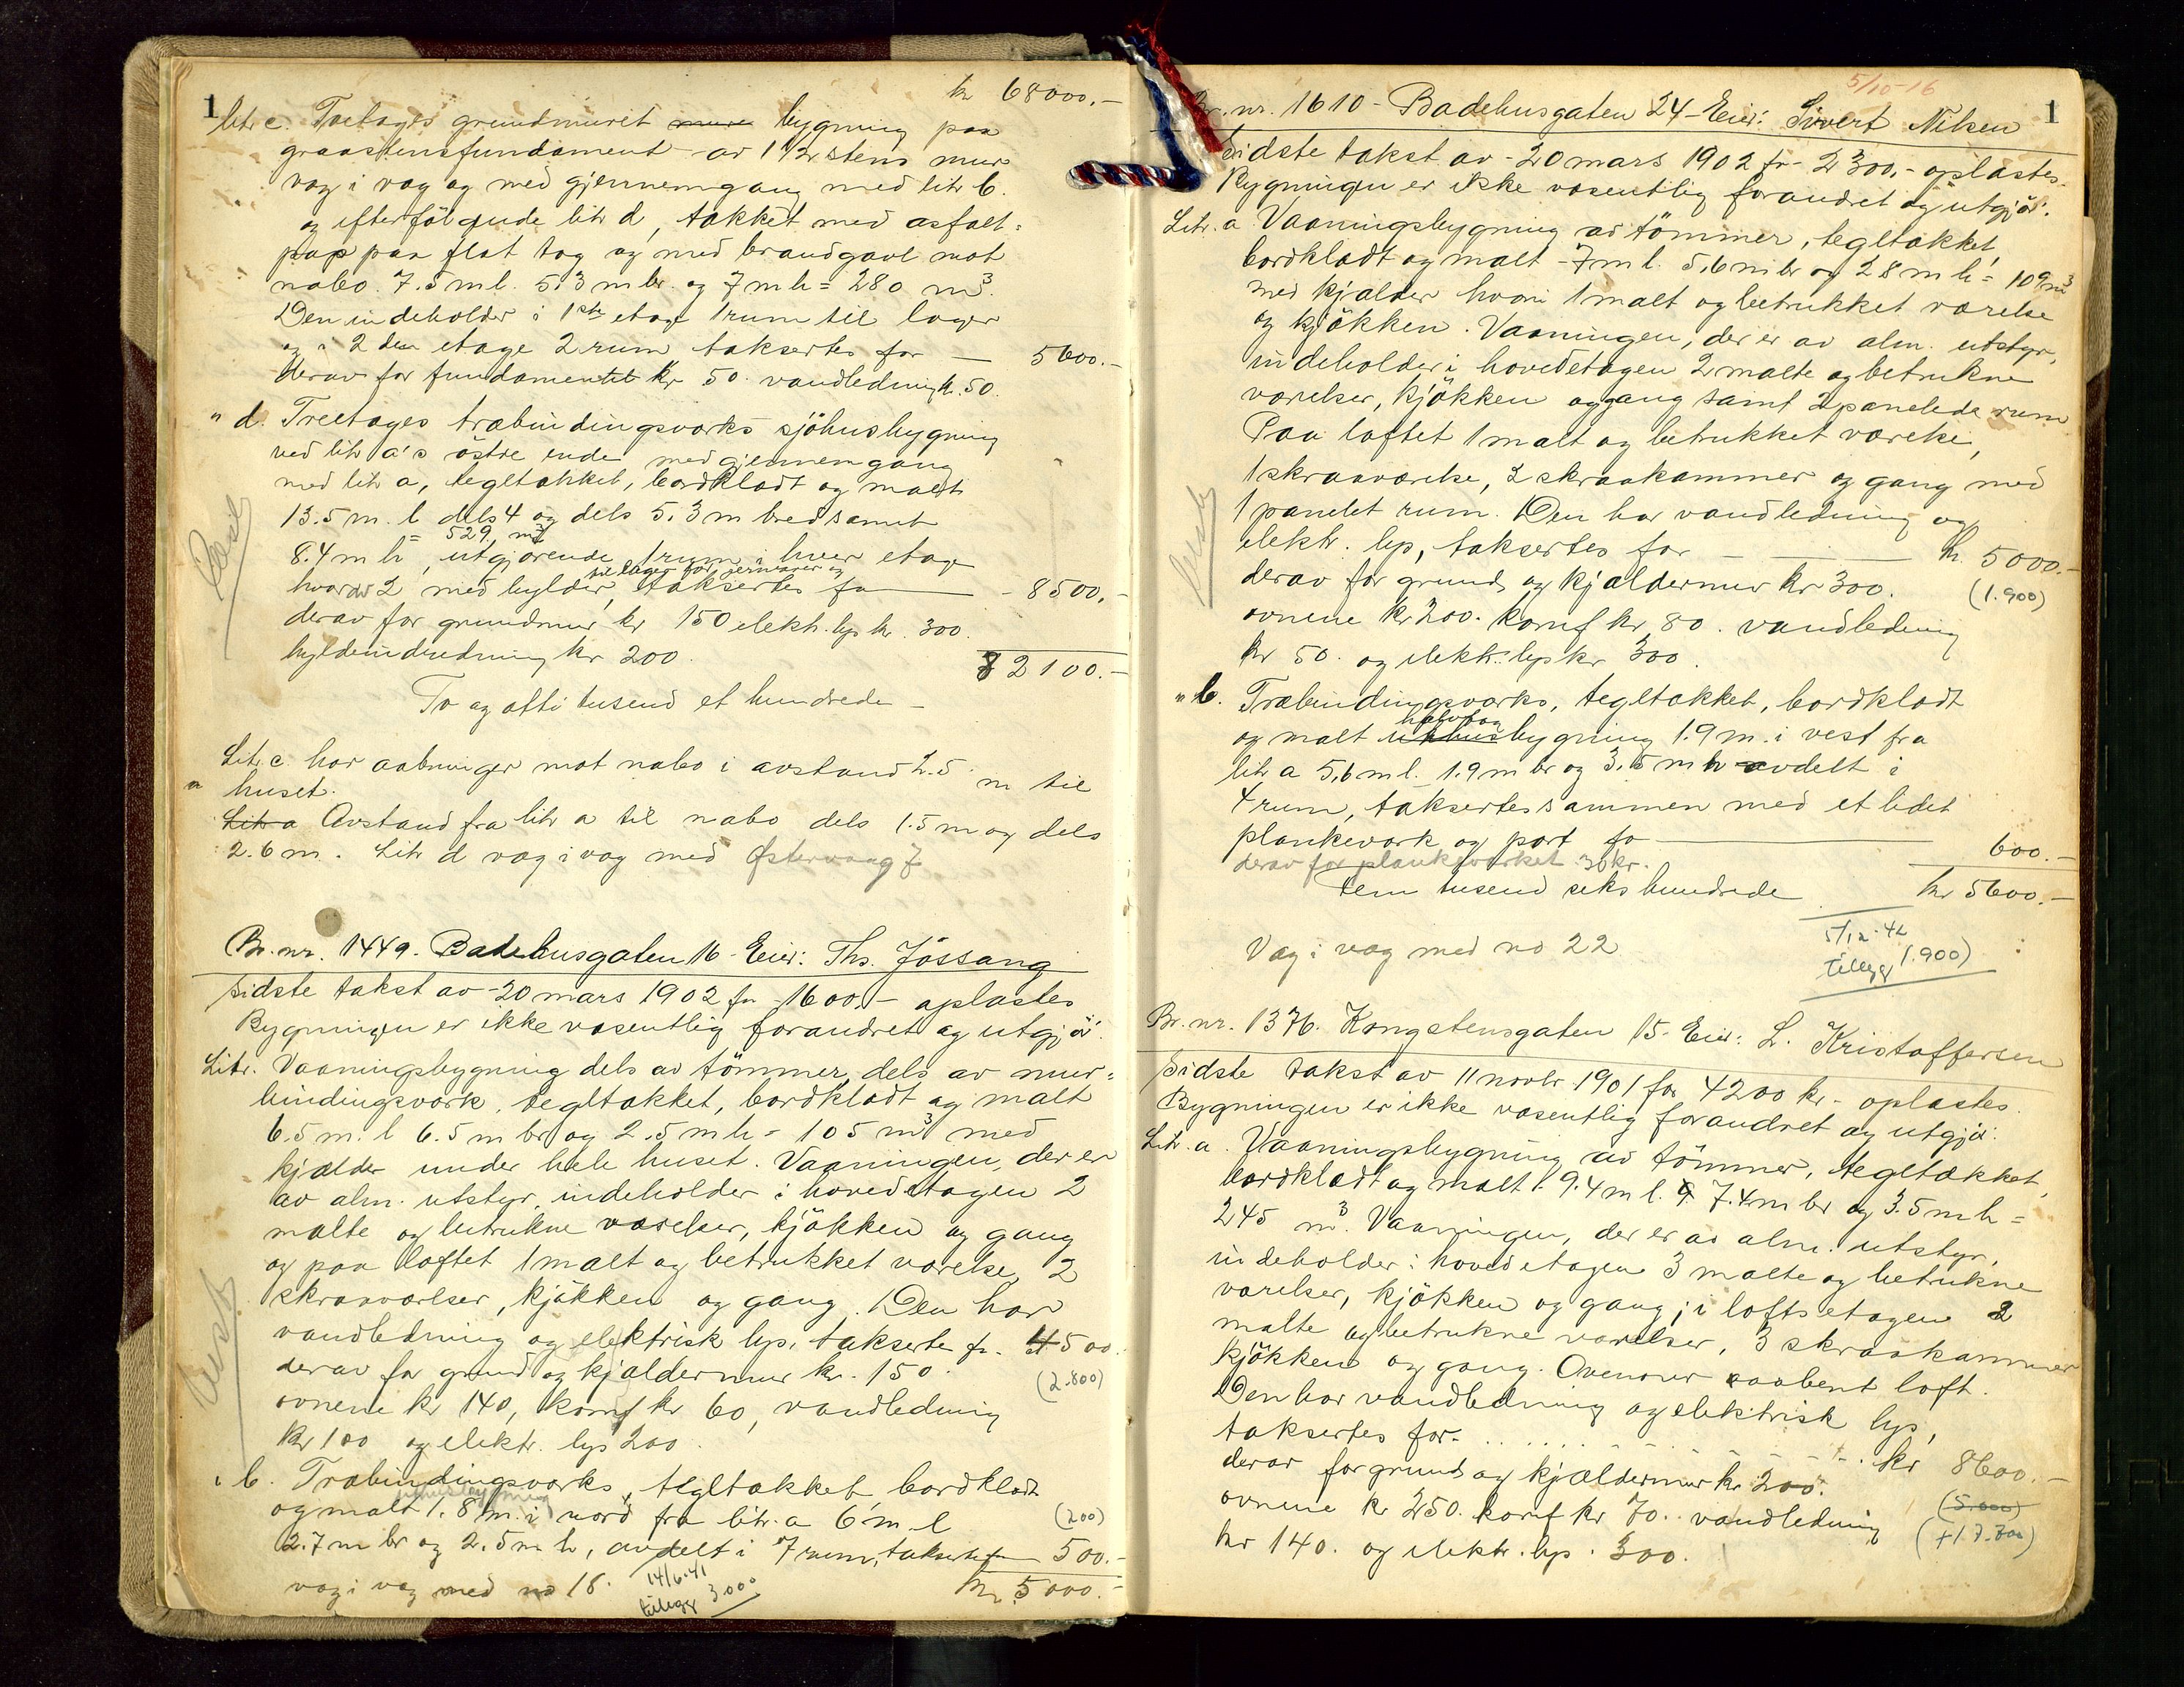 1
kr 68000.-
litr c. Toetages grundmuret mur bygning paa
graastensfundament av 1 1/2 stens mur
væg i væg og med gjennemgang med litr b.
og efterfölgende litr d, tækket med asfalt-
pap paa flat tag og med brandgavl mot
nabo. 7.5 m l. 5.3 m br. og 7 m h = 280 m³.
Den indeholder i 1ste etage 1 rum til lager
og i 2den etage 2 rum takseres for — 5600.-
derav for fundamentet kr 50. vandledning k. 50.
" d. Treetages træbindingsværks sjöhusbygning
ved litr a's östre ende med gjennemgang
med litr a, tegltækket, bordklædt og malt
13.5 m. l dels 4 og dels 5.3 m bred samt
= 529. m³
8.4 m h, utgjörende 1 rum i hver etage
til lager for jernvarer og
hvorav 2 med hylder, takseres for — 8500.-
derav for grundmur kr 150 elektr. lys kr. 300.
hyldeindredning kr 200.
82100.-
To og otti tusend et hundrede -
Litr. c har aabninger mot nabo i avstand 2.5 m til
" huset.
Litr a Avstand fra litr a til nabo dels 1.5 m og dels
2.6 m. Litr d væg i væg med Østervaag 7
Br. nr. 1449. Badehusgaten 16 - Eier: Ths. Jössang
Sidste takst av 20 mars 1902 for 1600.- oplæstes
Bygningen er ikke væsentlig forandret og utgjör:
Litr. Vaaningsbygning dels av tömmer, dels av mur-
bindingsværk, tegltækket, bordklædt og malt
6.5 m. l 6.5 m br og 2.5 m h = 105 m³ med
kjælder under hele huset. Vaaningen, der er
av alm. utstyr, indeholder i hovedetagen 2
malte og betrukne værelser, kjökken og gang
og paa loftet 1 malt og betrukket værelse, 2
skraaværelser, kjökken og gang. Den har
vandledning og elektrisk lys, takseres for. 4500.
derav for grund og kjældermur kr. 150. (2.800)
ovnene kr 140, komf kr 60, vandledning
kr 100 og elektr. lys 200.
" b. Træbindingsværks, tegltækket bordklædt
uthusbygning
og malt 1.8 m. i nord fra litr. a 6 m. l (200)
2.7 m br og 2.5 m h, avdelt i 7 rum, takseres for 500.-
væg i væg med no 18. 14/6-41 kr. 5000.-
tillegg 3.000
5/10-16
1
Br. nr. 1610 - Badehusgaten 24 - Eier: Sivert Nilsen
Sidste takst av - 20 mars 1902 for - 2300.- oplæstes.
Bygningen er ikke væsentlig forandret og utgjör:
Litr. a Vaaningsbygning av tömmer, tegltækket,
bordklædt og malt - 7 m l. 5.6 m br og 2.8 m h = 109 m³
med kjælder hvori 1 malt og betrukket værelse
og kjökken. Vaaningen, der er av alm. utstyr,
indeholder i hovedetagen 2 malte og betrukne
værelser, kjökken og gang samt 2 panelede rum
Paa loftet 1 malt og betrukket værelse,
1 skraaværelse, 2 skraakammer og gang med
1 panelet rum. Den har vandledning og
elektr. lys, takseres for — kr. 5000.-
derav for grund og kjældermur kr 300. (1.900)
ovnene kr 200. komf kr 80. vandledning
kr 50. og elektr. lys kr 300.
" b. Træbindingsværks, tegltækket, bordklædt
halvtag
og malt uthusbygning 1.9 m. i vest fra
litr a 5.6 m l. 1.9 m br og 3.5 m h avdelt i
4 rum, takseres sammen med et ledet
plankeværk og port for — 600.-
derav for plankeværket 30 kr.
Fem tusend seks hundrede kr 5600.-
Væg i væg med no 22
5/12-42
tillegg (1.900)
Br. nr. 1376. Kongstensgaten 15 - Eier: L. Kristoffersen
Sidste takst av 11 novbr 1901 for 4200 kr. - oplæstes.
Bygningen er ikke væsentlig forandret og utgjör:
Litr. a. Vaaningsbygning av tömmer, tegltækket,
bordklædt og malt 9.4 m l. 7.4 m br og 3.5 m h =
245 m³. Vaaningen, der er av alm. utstyr,
indeholder i hovedetagen 3 malte og betrukne
værelser, kjökken og gang; i loftsetagen 2
malte og betrukne værelser, 3 skraakammer
kjökken og gang. Ovenover aabent loft.
Den har vandledning og elektrisk lys,
takseres for - . . . . . kr 8600.-
derav for grund og kjældermur kr. 200. (5.000)
ovnene kr 250. komf kr 70. vandledning (+17.700)
kr 140. og elektr. lys. 300.